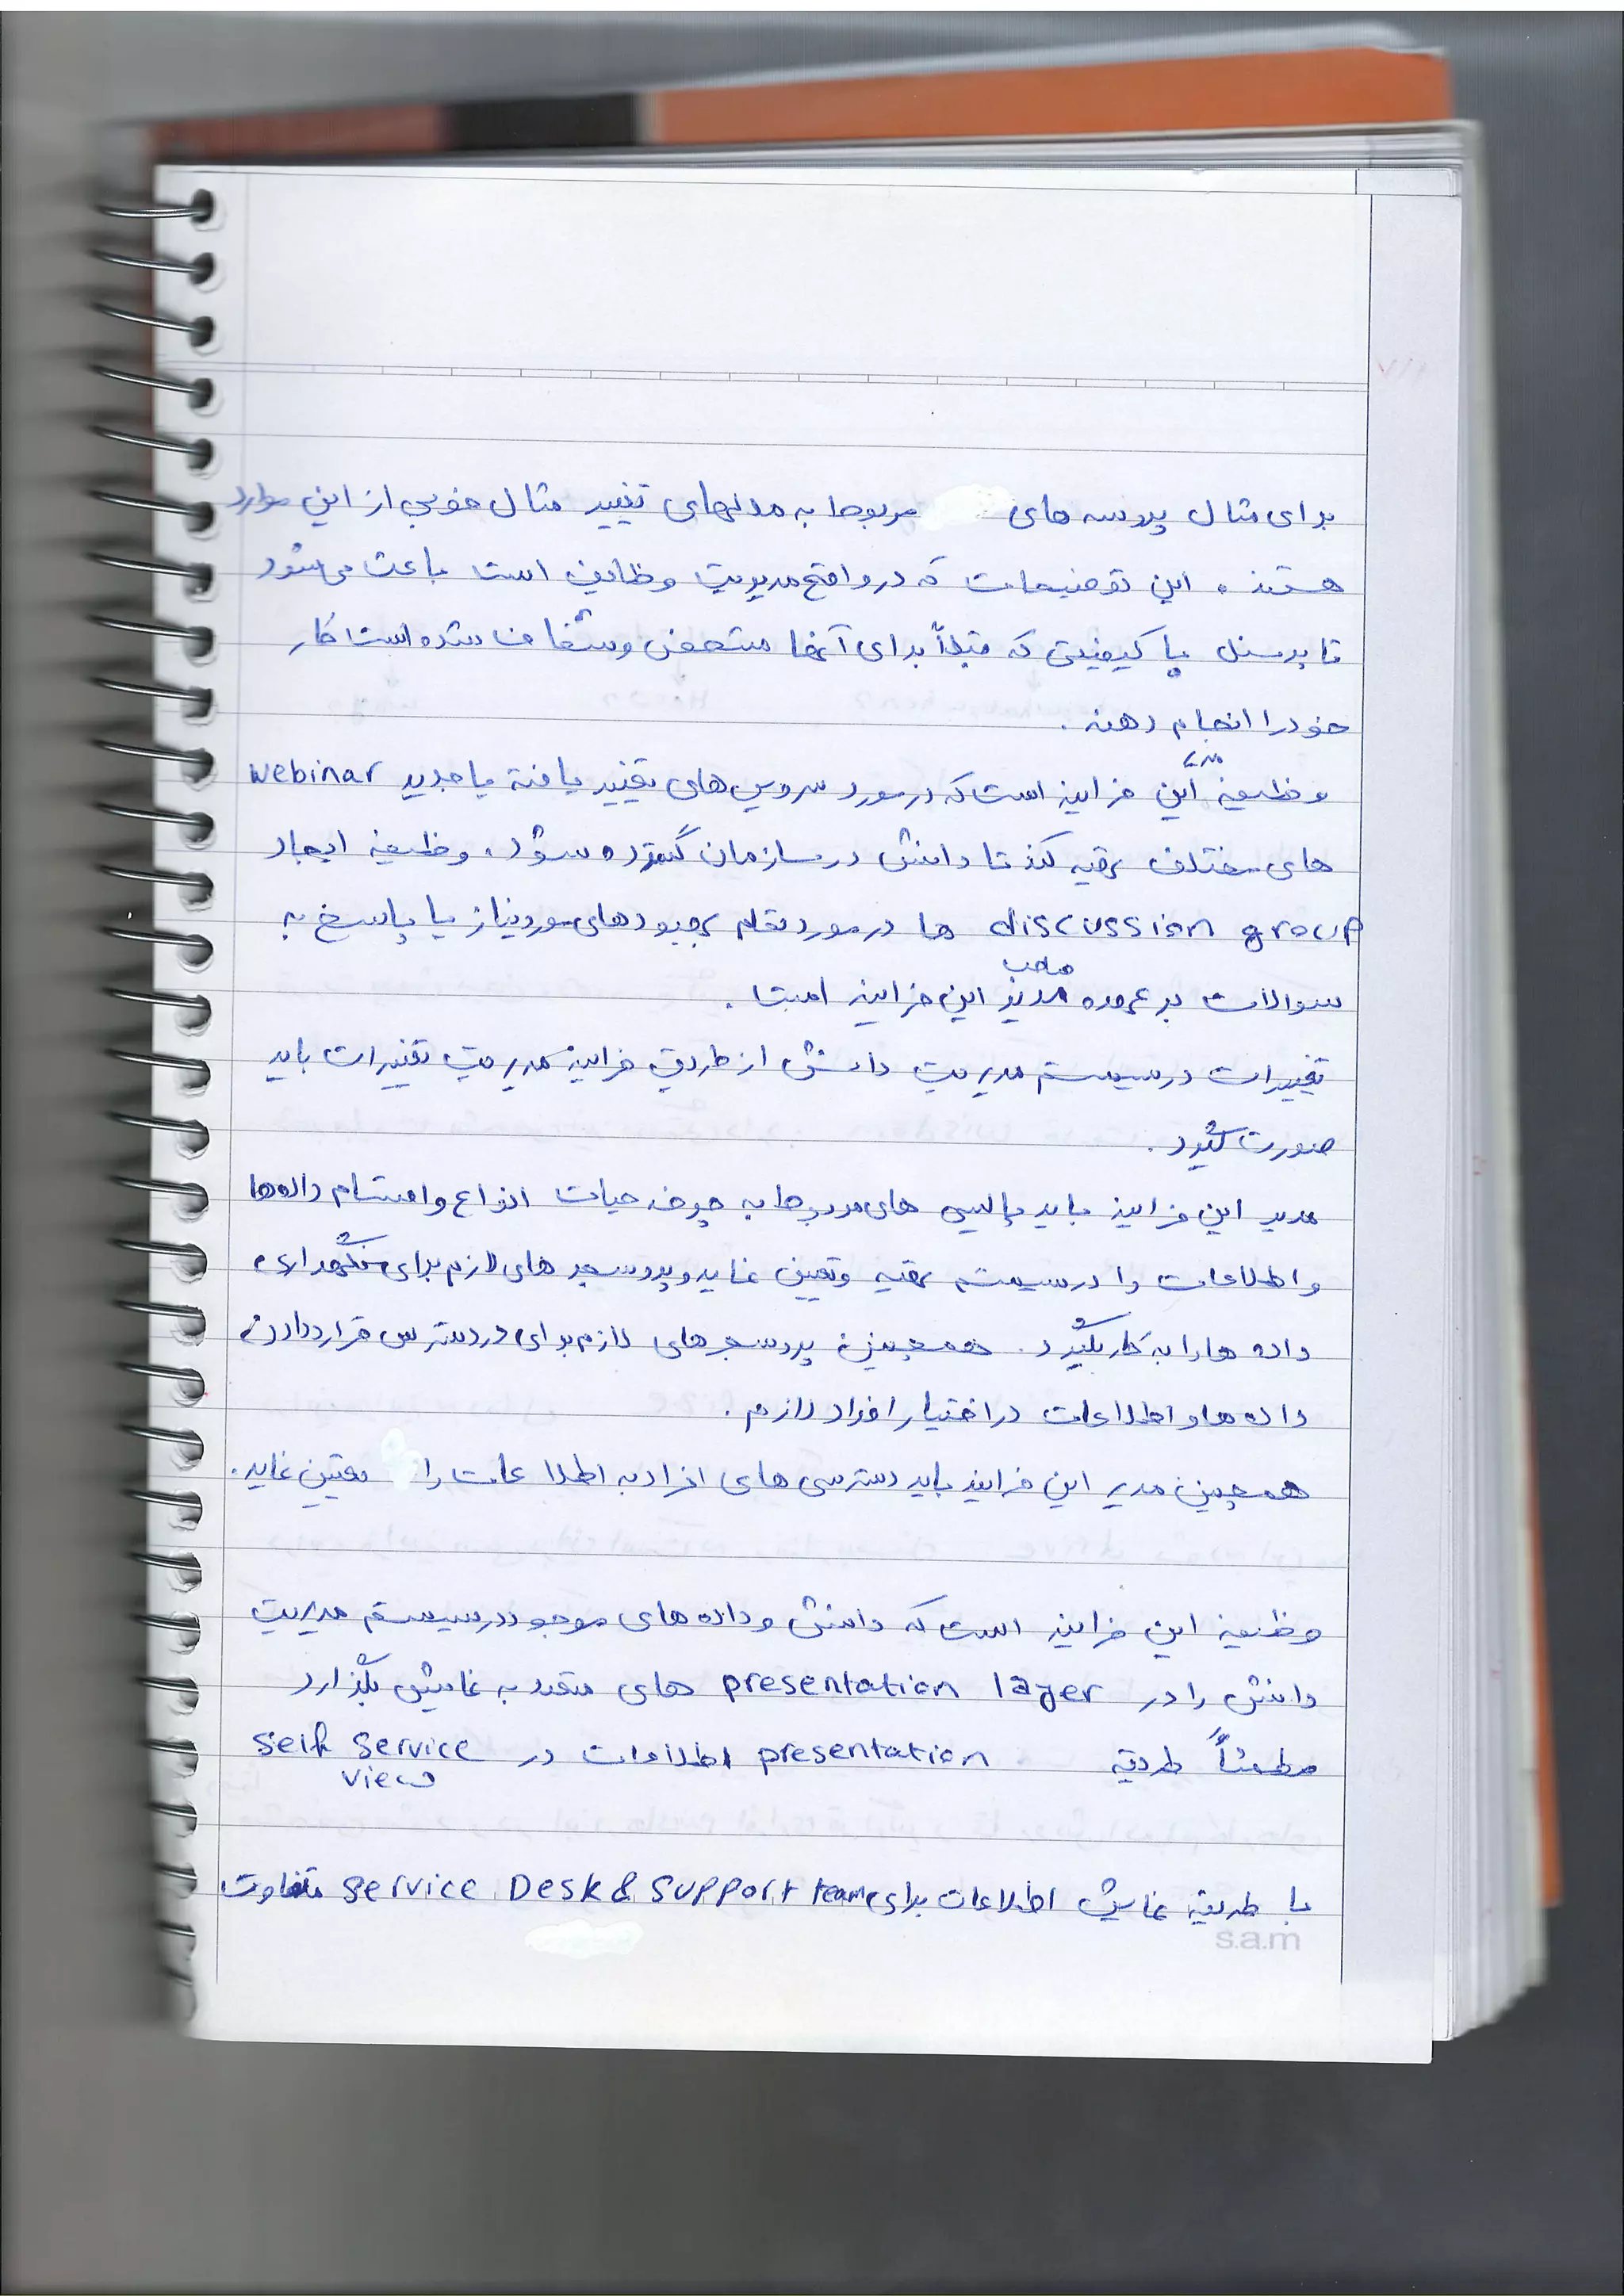 برای مثال پروسه های مربوط به مدلهای تغییر مثال خوبی از این موارد
هستند . این توضیحات که در واقع مدیریت وظایف است باعث می شود
تا پرسنل با کیفیتی که قبلاً برای آنها مشخص و شفاف شده است کار
خود را انجام دهند .
مدیر
وظیفه این فرایند است که در مورد سرویس های تغییر یافته یا جدید webinar
های مختلف تهیه کند تا دانش در سازمان گسترده شود . وظیفه ایجاد
discussion group ها در مورد تمام بهبودهای مورد نیاز یا پاسخ به
صاحب
سوالات بر عهده مدیر این فرایند است .
تغییرات در سیستم مدیریت دانش از طریق فرایند مدیریت تغییرات باید
صورت گیرد .
مدیر این فرایند باید پالیسی های مربوط به چرخه حیات انواع و اقسام داده ها
و اطلاعات را در سیستم تهیه و تعیین نماید و پروسیجر های لازم برای نگهداری
داده ها را به کار بگیرد . همچنین پروسیجرهای لازم برای در دسترس قرار دادن
داده ها و اطلاعات در اختیار افراد لازم .
همچنین مدیر این فرایند باید دسترسی های افراد به اطلاعات را تعیین نماید .
وظیفه این فرایند است که دانش و داده های موجود در سیستم مدیریت
دانش را در presentation layer های متعدد به نمایش بگذارد
مطمئناً طریقه presentation اطلاعات در Self Service
view
با طریقه نمایش اطلاعات برای Service Desk & Support team متفاوت
s.a.m